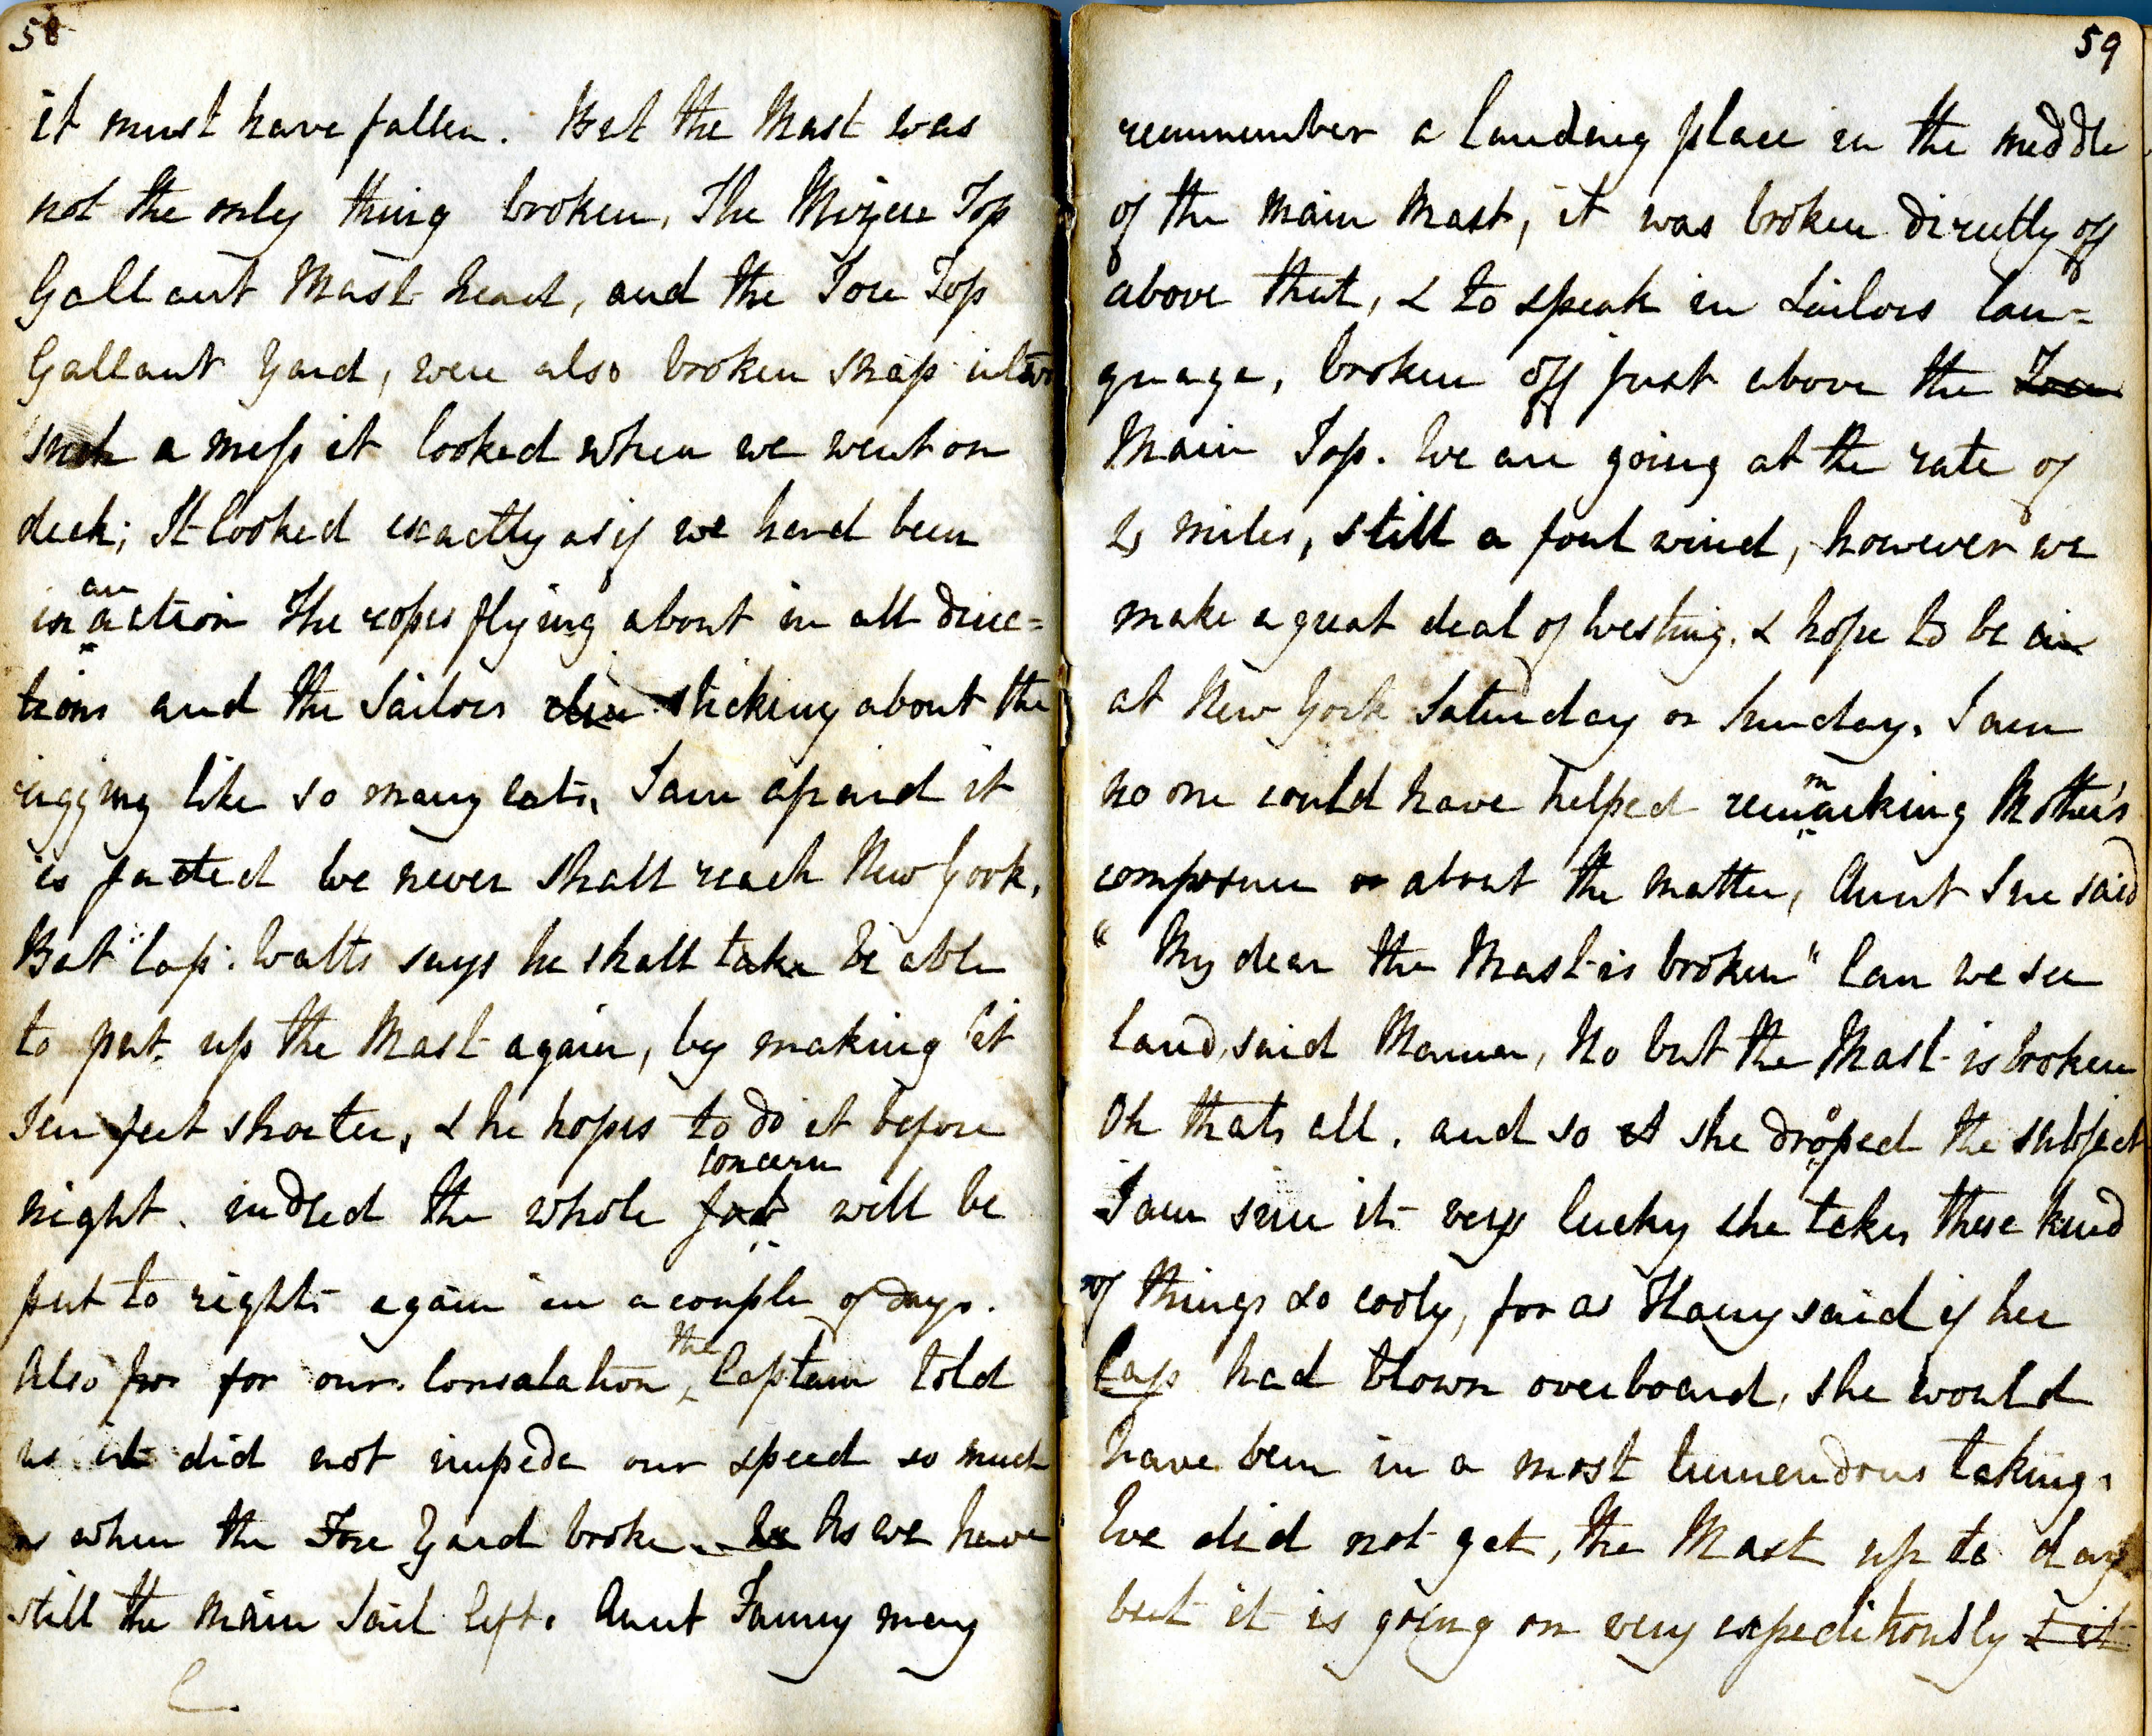 58
it must have fallen. But the Mast was
not the only thing broken, The Mizen Top
Gallant Mast head, and the Fore Top
Gallant Yard, were also broken snap in two
such a mess it looked when we went on
deck; It looked exactly as if we had been
in an action The ropes flying about in all direc=
tions and the Sailors sticking about the
rigging like so many cats. I am afraid it
is fated we never shall reach New York,
But Cap: Watts says he shall take be able
to put up the Mast again, by making it
ten feet shorter, & he hopes to do it before
night. indeed the whole concern will be
put to rights again in a couple of days.
Also for for our Consalation, the Captain told
us it did not impede our speed so much
as when the Fore Yard broke. As we have
still the Main Sail left. Aunt Fanny may
59
remmember a landing place in the middle
of the Main Mast, it was broken directly off
above that, & to speak in Sailors lan=
guage, broken off just above the
Main Top. We are going at the rate of
miles, still a foul wind, however we
make a great deal of Westing, & hope to be in
at New York Saturday or Sunday. I am
no one could have helped remarking Mother's
composure or about the matter, Aunt Sue said
"My dear the Mast is broken" Can we see
land, said Mamma, No but the Mast is broken
Oh thats all. and so it she droped the subject
I am sure its very lucky she takes these kind
of things so cooly, for as Harry said if her
Cap had blown overboard, she would
have been in a most tumendous taking.
We did not get, the Mast up to day
but it is going on very expeditiously & it